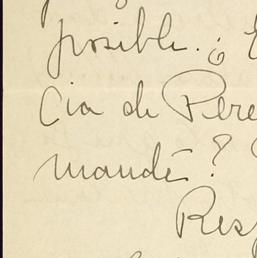 posible. ¿
Cia de Pere
mandé?
Res